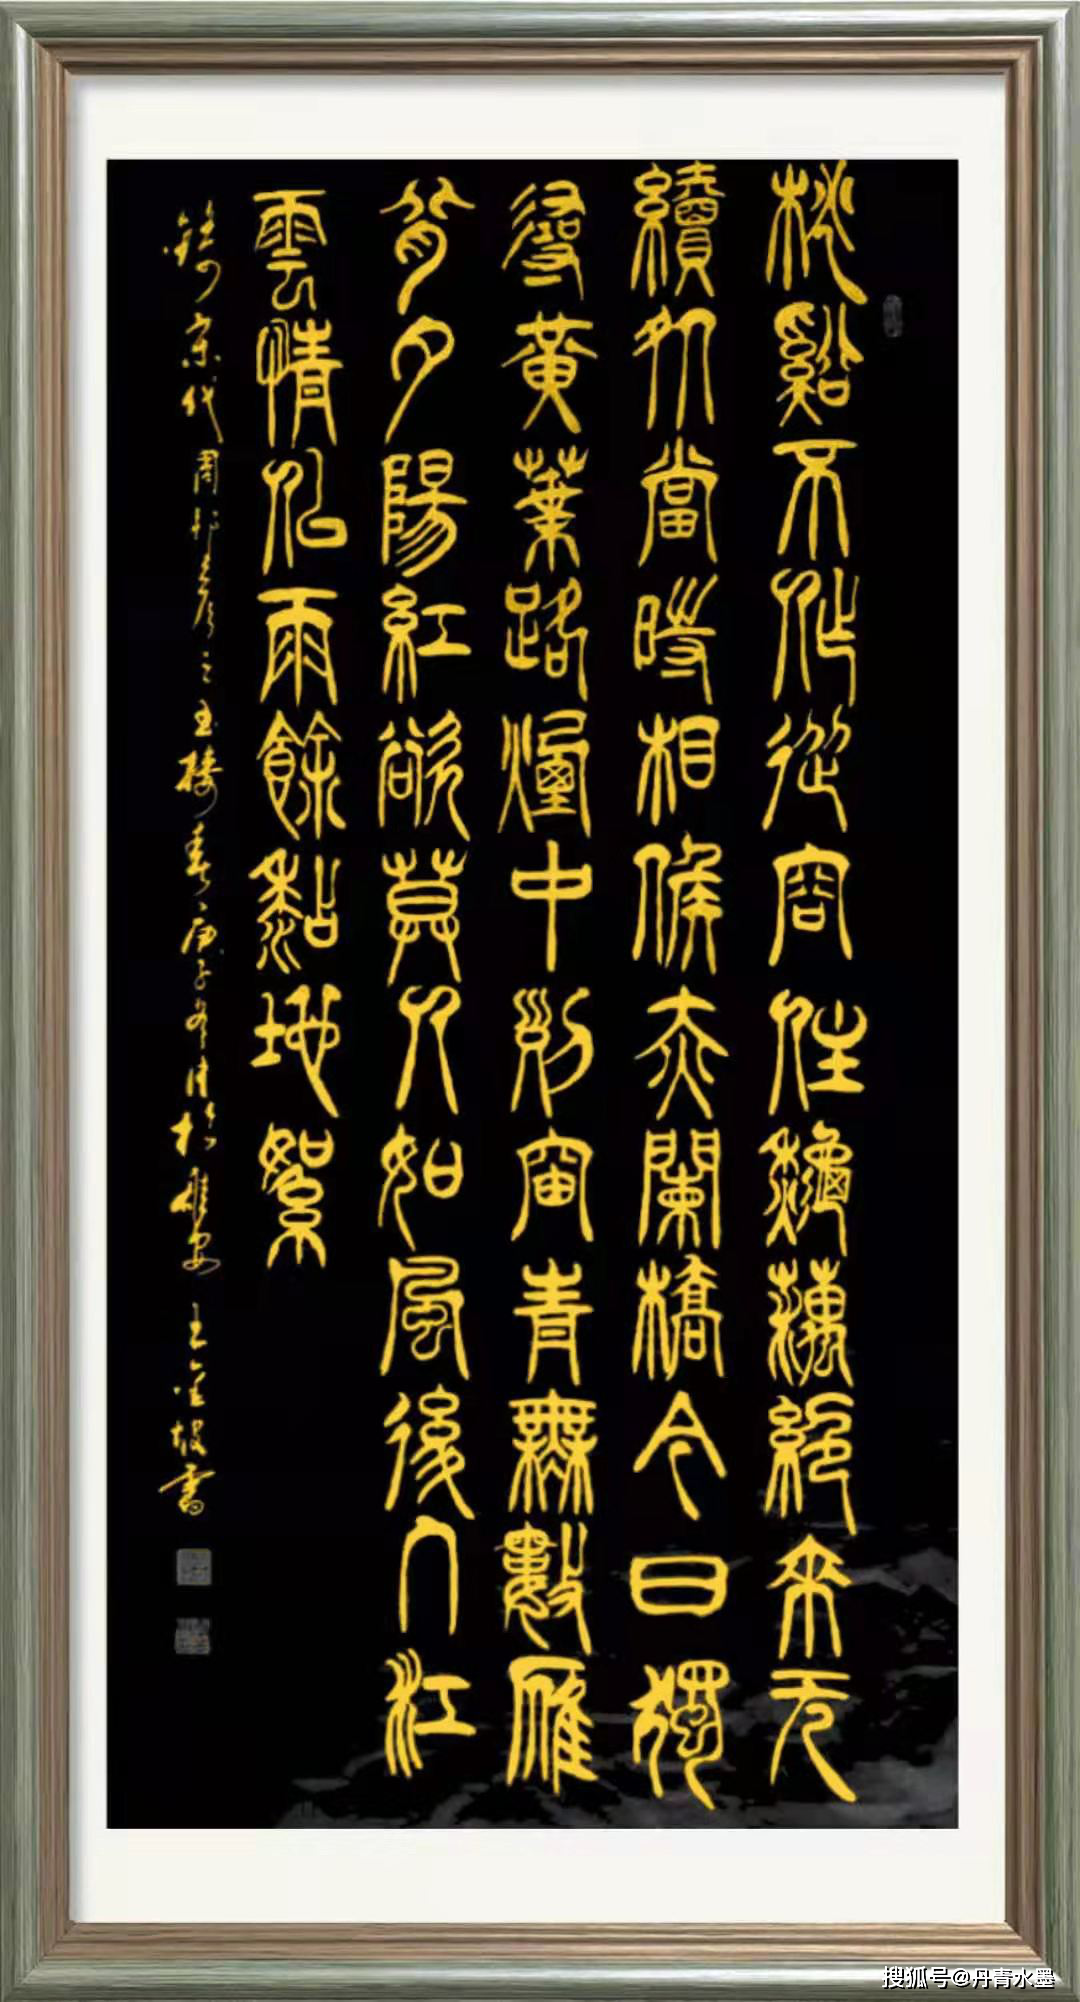 桃谿不作從容住秋藕絕來无
續処當時相候赤闌橋今日獨
尋黃葉路煙中列岫青無數雁
背夕陽紅欲莫人如風後入江
雲情佀雨餘黏地絮
錄宋代周邦彥之玉樓春庚子冬於雅安 王金坡書
搜狐号@丹青水墨